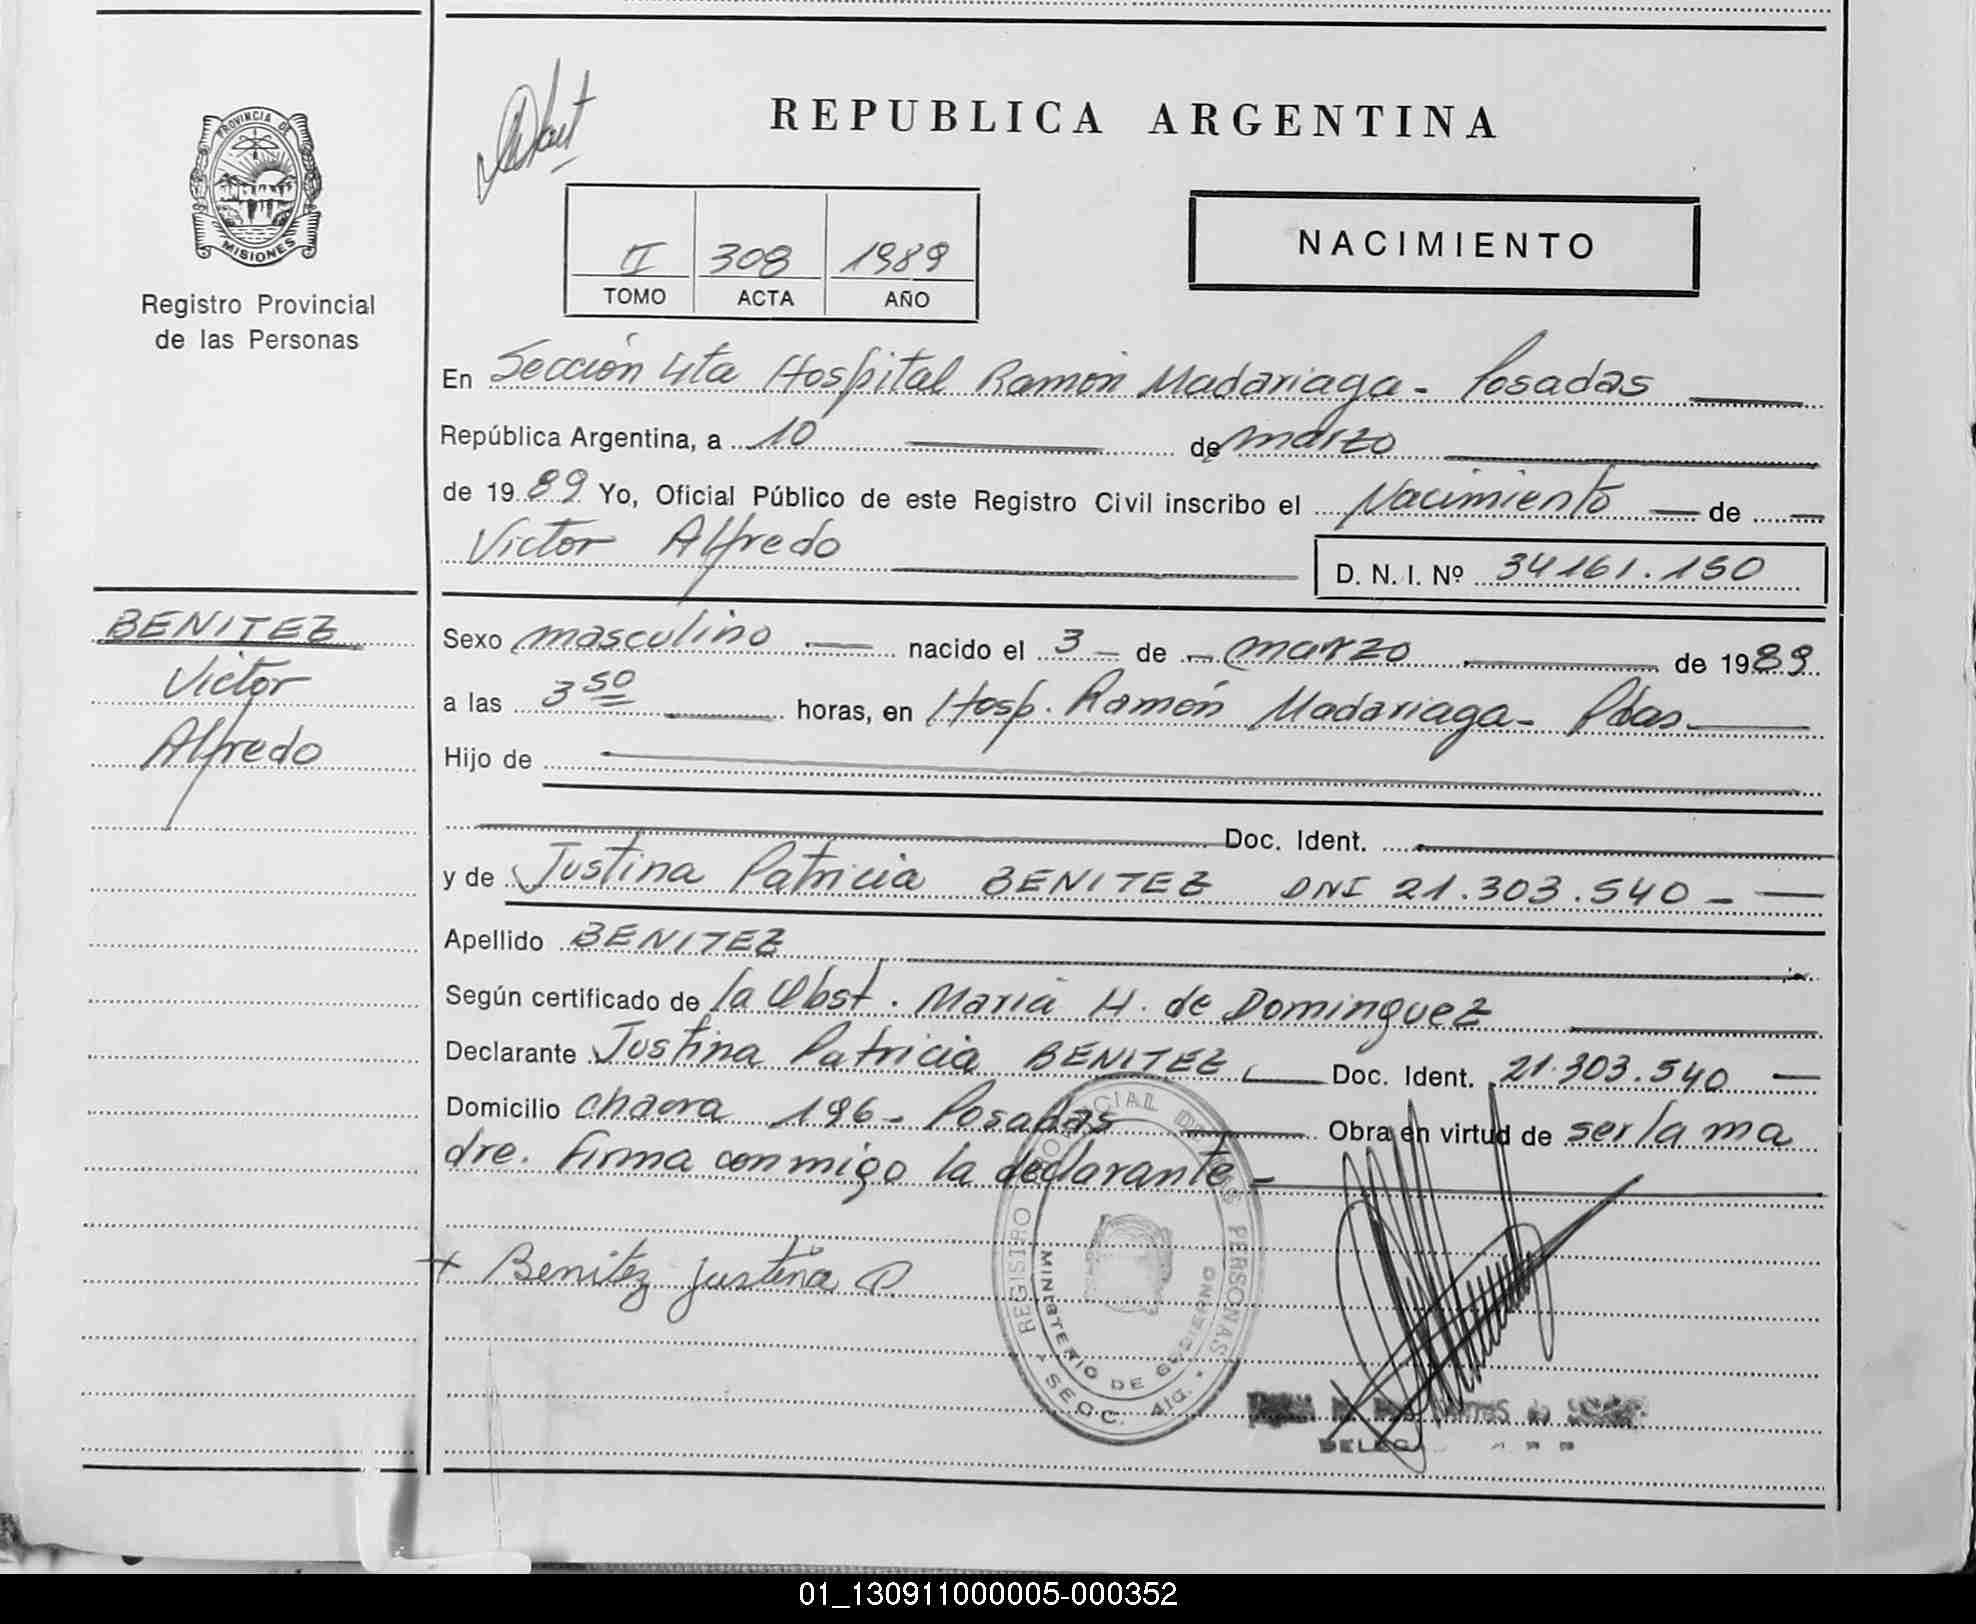 PROVINCIA DE
MISIONES
Registro Provincial
de las Personas
REPUBLICA ARGENTINA
II 308 1989
TOMO ACTA AÑO
NACIMIENTO
En Sección 4ta Hospital Ramón Madariaga - Posadas
República Argentina, a 10 de marzo
de 1989 Yo, Oficial Público de este Registro Civil inscribo el Nacimiento de
Victor Alfredo D. N. I. Nº 34161.150
BENITEZ
Victor
Alfredo
Sexo masculino nacido el 3 de marzo de 1989
a las 3 50 horas, en Hosp. Ramón Madariaga - Pdas
Hijo de
Doc. Ident.
y de Justina Patricia BENITEZ DNI 21.303.540 -
Apellido BENITEZ
Según certificado de la Obst. Maria H. de Dominguez
Declarante Justina Patricia BENITEZ, Doc. Ident. 21.303.540
Domicilio chacra 196 - Posadas Obra en virtud de ser la ma
dre. Firma conmigo la declarante -
+ Benitez justina P
REGISTRO PROVINCIAL DE LAS PERSONAS
MINISTERIO DE GOBIERNO
SECC. 4ta.
01_130911000005-000352